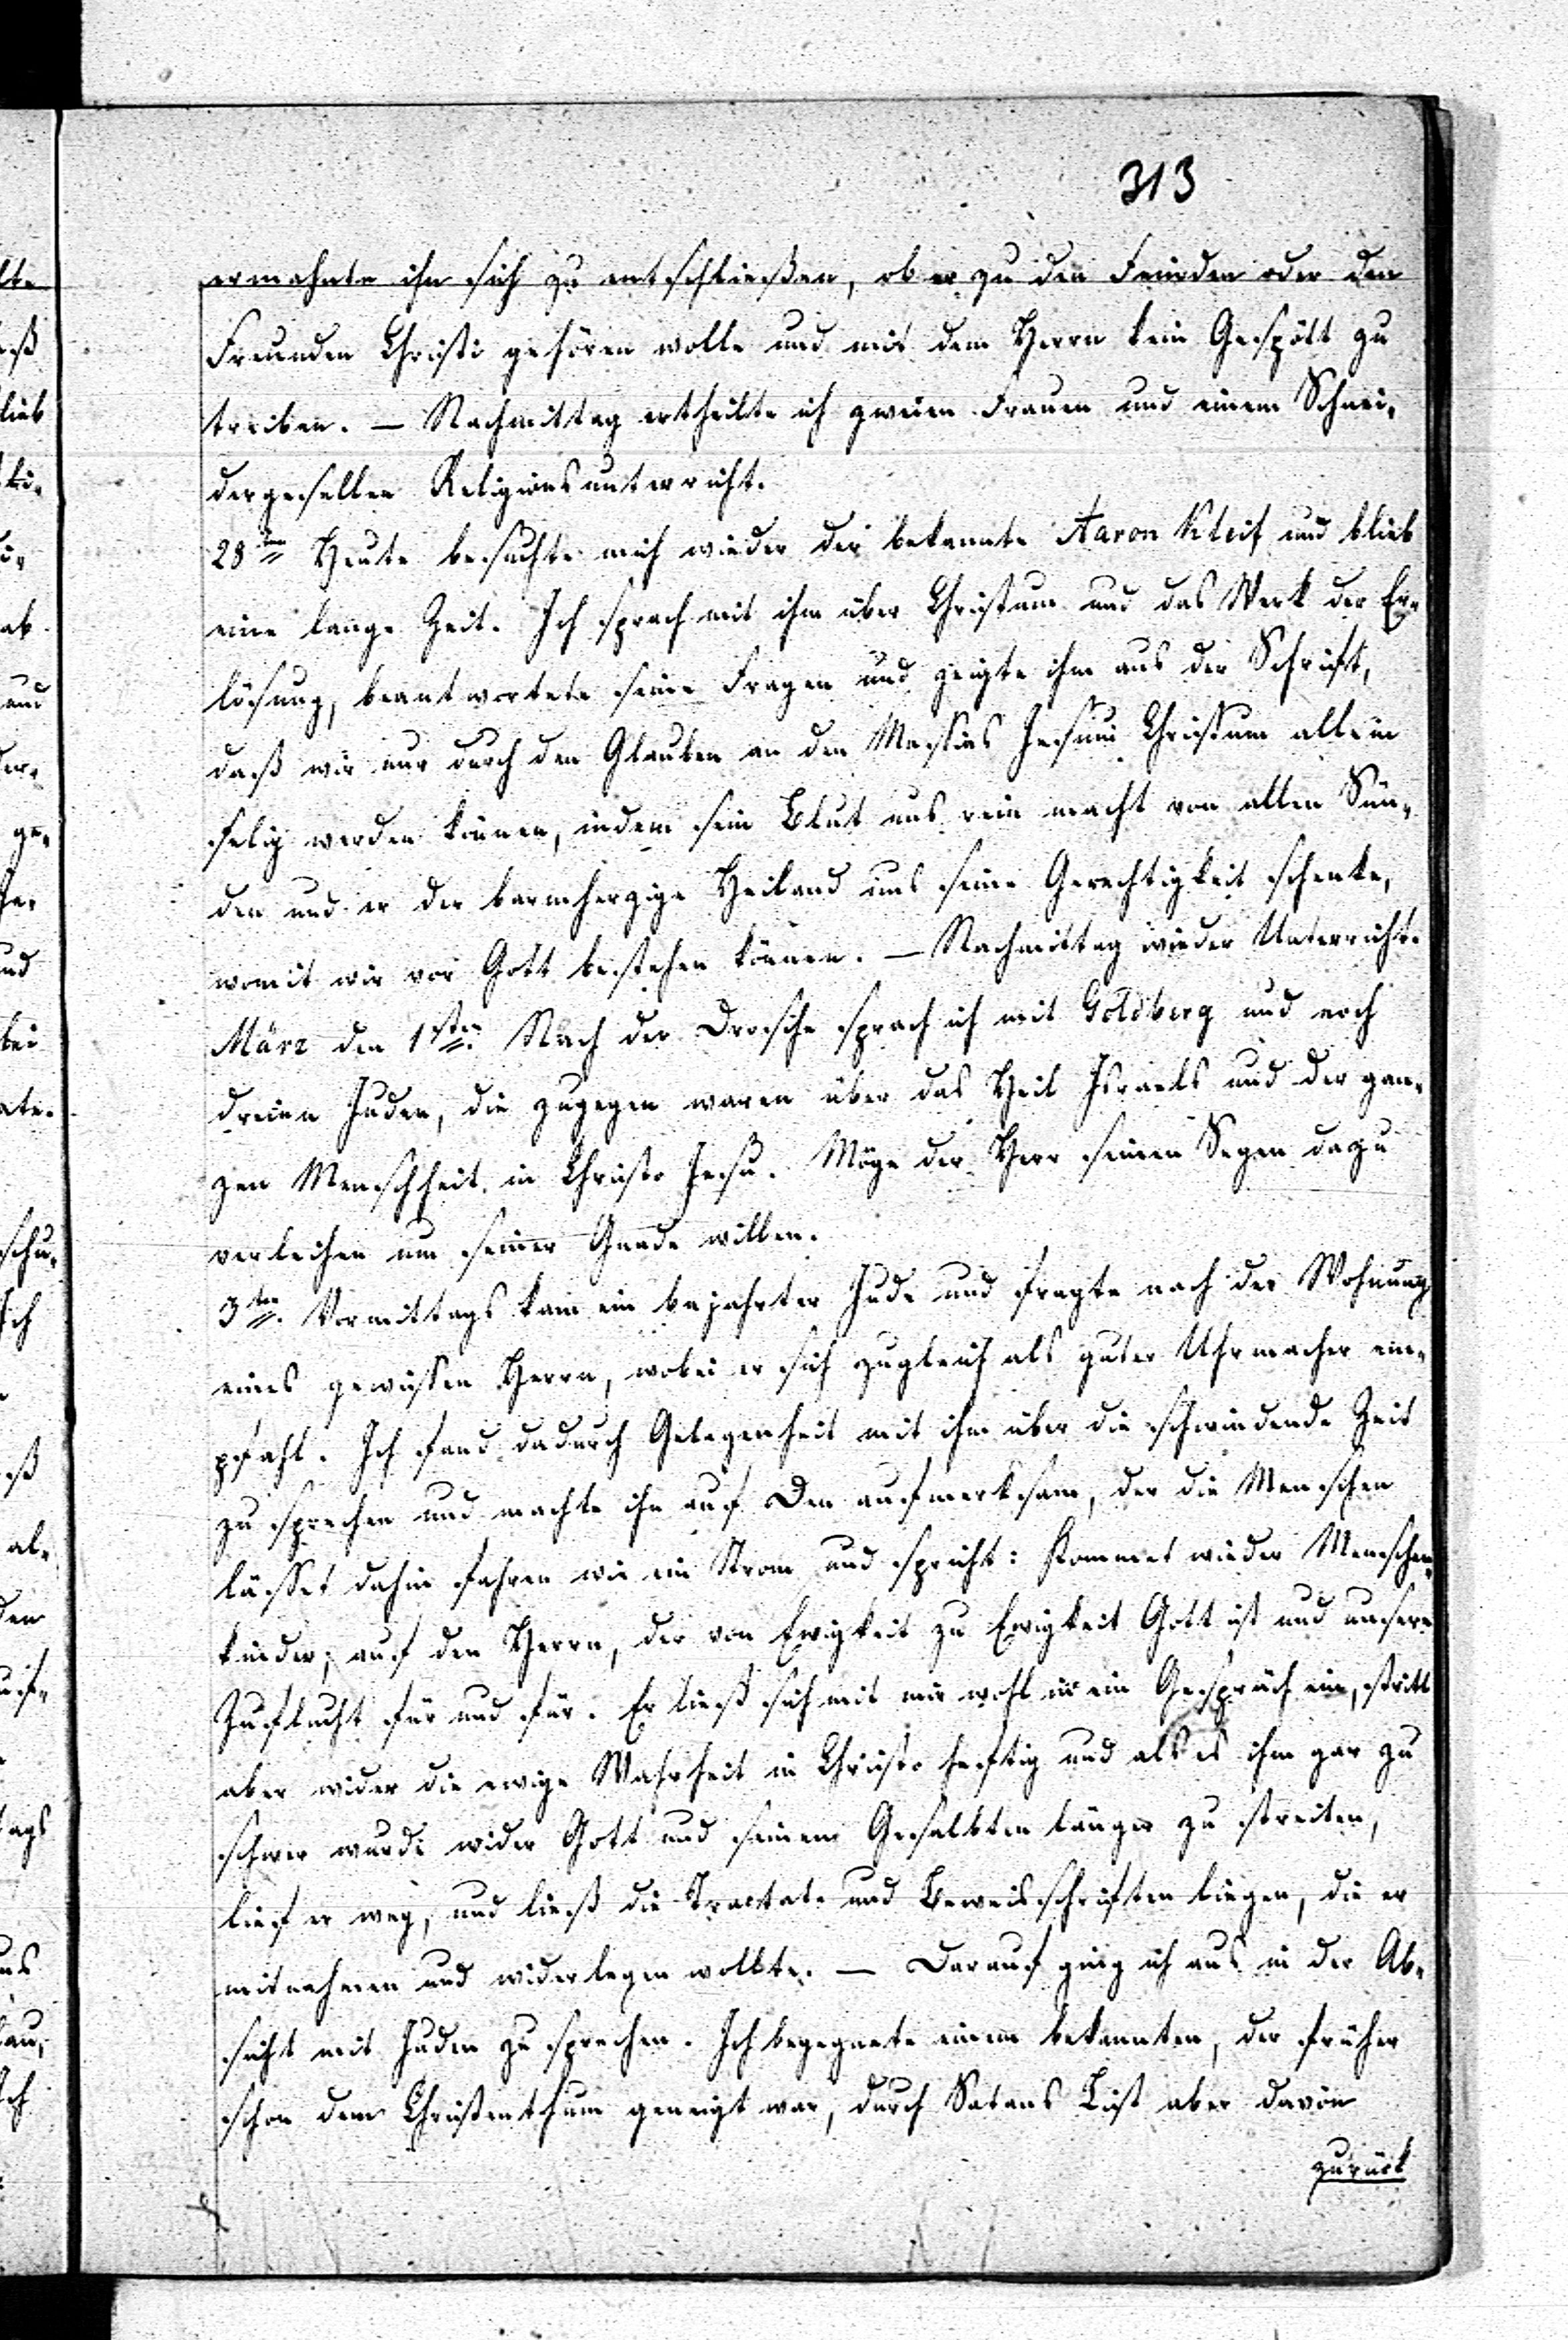 313
ermahnte ihn sich zu entschließen, ob er zu den Feinden oder den
Freunden Christi gehören wolle und mit dem Herrn kein Gespött zu
treiben. — Nachmittag ertheilte ich zweien Frauen und einem Schnei-
dergesellen Religionsunterricht.
28ten Heute besuchte mich wieder der bekannte Aaron Kleif und blieb
eine lange Zeit. Ich sprach mit ihm über Christum und das Werk der Er-
lösung, beantwortete seine Fragen und zeigte ihm aus der Schrift,
daß wir nur durch den Glauben an den Messias Jesum Christum allein
selig werden können, indem sein Blut uns rein macht von allen Sün-
den und er der barmherzige Heiland uns seine Gerechtigkeit schenke,
womit wir vor Gott bestehen können. — Nachmittag wieder Unterricht.
März den 1sten. Nach der Drosche sprach ich mit Goldberg und noch
dreien Juden, die zugegen waren über das Heil Israels und der gan-
zen Menschheit in Christo Jesu. Möge der Herr seinen Segen dazu
verleihen um seiner Gnade willen.
3ten. Vormittags kam ein bejahrter Jude und fragte nach der Wohnung
eines gewissen Herrn, wobei er sich zugleich als guter Uhrmacher em-
pfahl. Ich fand dadurch Gelegenheit mit ihm über die schwindende Zeit
zu sprechen und machte ihn auf Den aufmerksam, der die Menschen
lässet dahin fahren wie ein Strom und spricht: Kommet wieder Menschen-
kinder, auf den Herrn, der von Ewigkeit zu Ewigkeit Gott ist und unsere
Zuflucht für und für. Er ließ sich mit mir wohl in ein Gespräch ein, stritt
aber wider die ewige Wahrheit in Christo heftig und als es ihm gar zu
schwer wurde wider Gott und seinem Gesalbten länger zu streiten,
lief er weg, und ließ die Tractate und Beweisschriften liegen, die er
mitnehmen und widerlegen wollte. — Darauf ging ich aus in der Ab-
sicht mit Juden zu sprechen. Ich begegnete einem bekannten, der früher
schon dem Christenthum geneigt war, durch Satans List aber davon
zurück